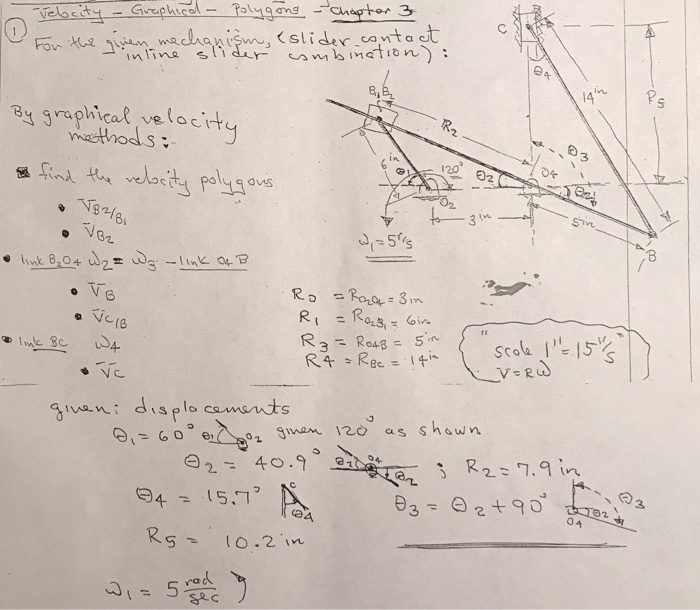 Velocity - Graphical - Polygons - Chapter 3
① For the given mechanism, (slider contact
inline slider combination):
By graphical velocity
methods:
find the velocity polygons
• V̄B2/B1
• V̄B2
• link B2O4 ω2 = ω3 - link O4B
• V̄B
• V̄C/B
• link BC ω4
• V̄C
C
θ4
14 in
R5
B1,B2
R2
θ3
6 in
θ1
120°
θ2
O4
θ2
O2
3 in
5 in
B
ω1 = 5 r/s
R0 = RO2O4 = 3 in
R1 = RO2B1 = 6 in
R3 = RO4B = 5 in
R4 = RBC = 14 in
"scale 1" = 15"/s"
V = Rω
given: displacements
θ1 = 60° θ1 O2 given 120° as shown
θ2 = 40.9° θ2 O4 θ2 ; R2 = 7.9 in
θ4 = 15.7° C θ4
θ3 = θ2 + 90° θ2 θ3 O4
R5 = 10.2 in
ω1 = 5 rad/sec